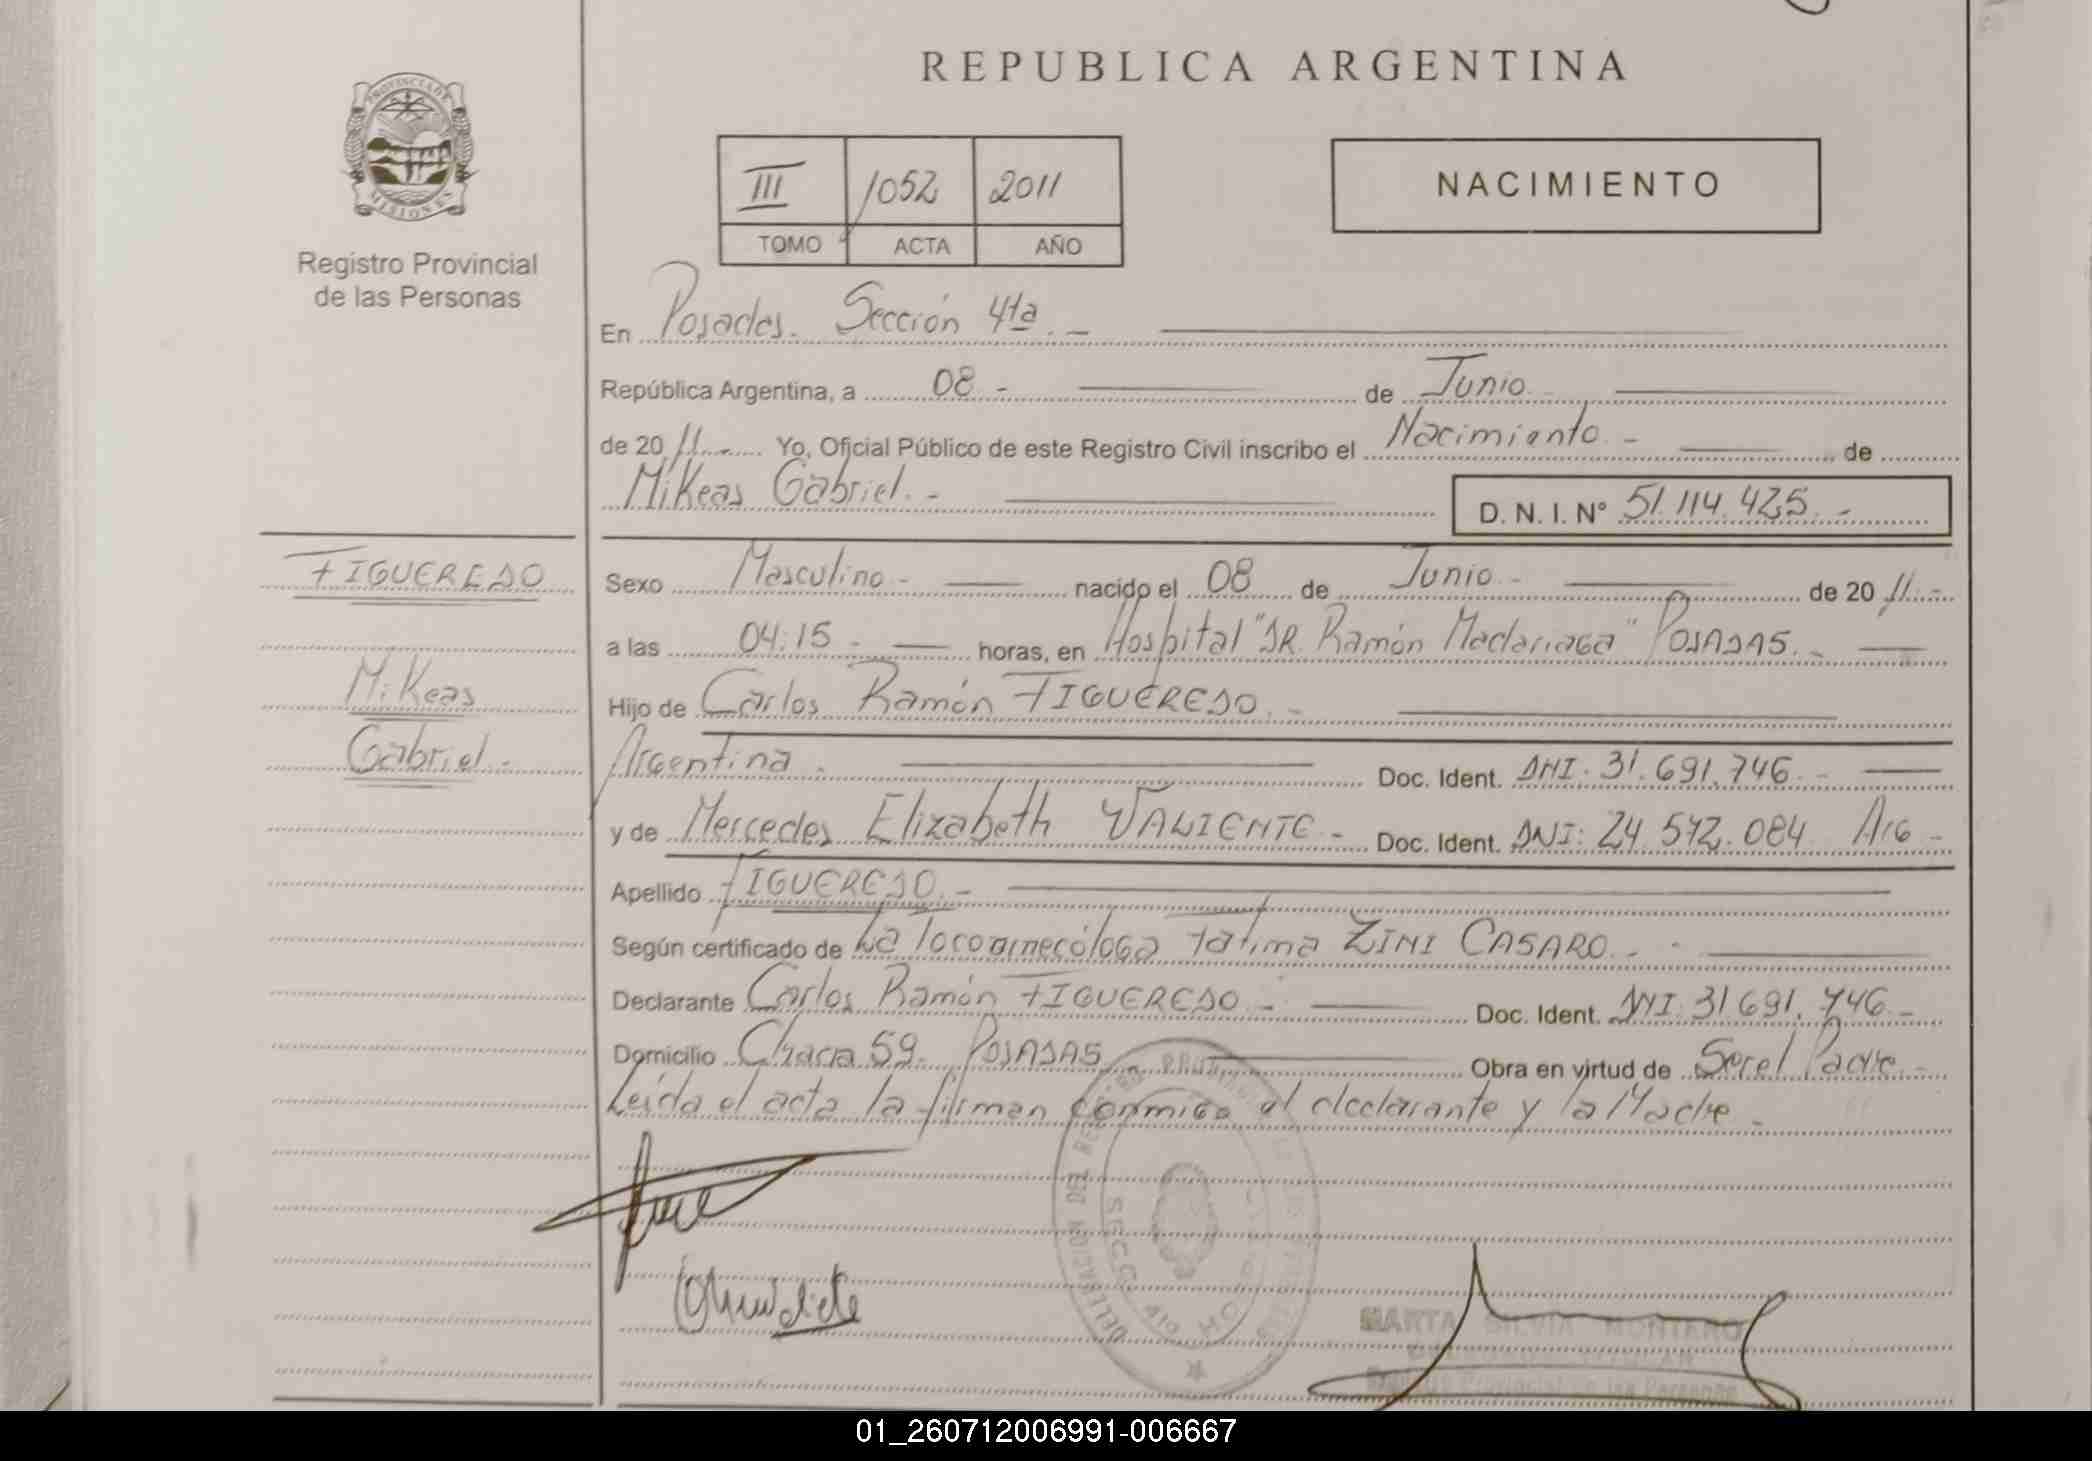 REPUBLICA ARGENTINA
PROVINCIA DE
MISIONES
Registro Provincial
de las Personas
III 1052 2011
TOMO ACTA AÑO
NACIMIENTO
En Posadas. Sección 4ta.-
República Argentina, a 08 - de Junio
de 20 11.- Yo, Oficial Público de este Registro Civil inscribo el Nacimiento.- de
MiKeas Gabriel.-
D. N. I. N° 51.114.425.-
FIGUEREDO
MiKeas
Gabriel.-
Sexo Masculino - nacido el 08 de Junio.- de 20 11.-
a las 04:15 - horas, en Hospital "DR. Ramón Madariaga" POSADAS.-
Hijo de Carlos Ramón FIGUEREDO.-
Argentina - Doc. Ident. DNI. 31.691.746.-
y de Mercedes Elizabeth VALIENTE.- Doc. Ident. DNI: 24.572.084 Arg -
Apellido FIGUEREDO.-
Según certificado de La Tocoginecóloga Fatima ZINI CASARO.-
Declarante Carlos Ramón FIGUEREDO.- Doc. Ident. DNI. 31.691.746.-
Domicilio Chacra 59. POSADAS Obra en virtud de Ser el Padre.-
Leída el acta la firman conmigo el declarante y la Madre.-
DELEGACION DEL
SECC
MARTA SILVIA MONTERO
Provincial de las Personas
01_260712006991-006667